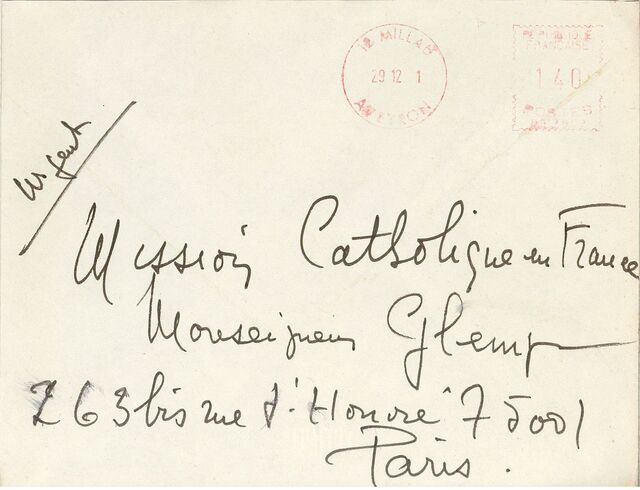 12 MILLAU
29 12 1
AVEYRON
REPUBLIQUE
FRANCAISE
140
POSTES
Urgent
Mission Catholique en France
Monseigneur Glemp
263 bis rue St. Honoré 75001
Paris.